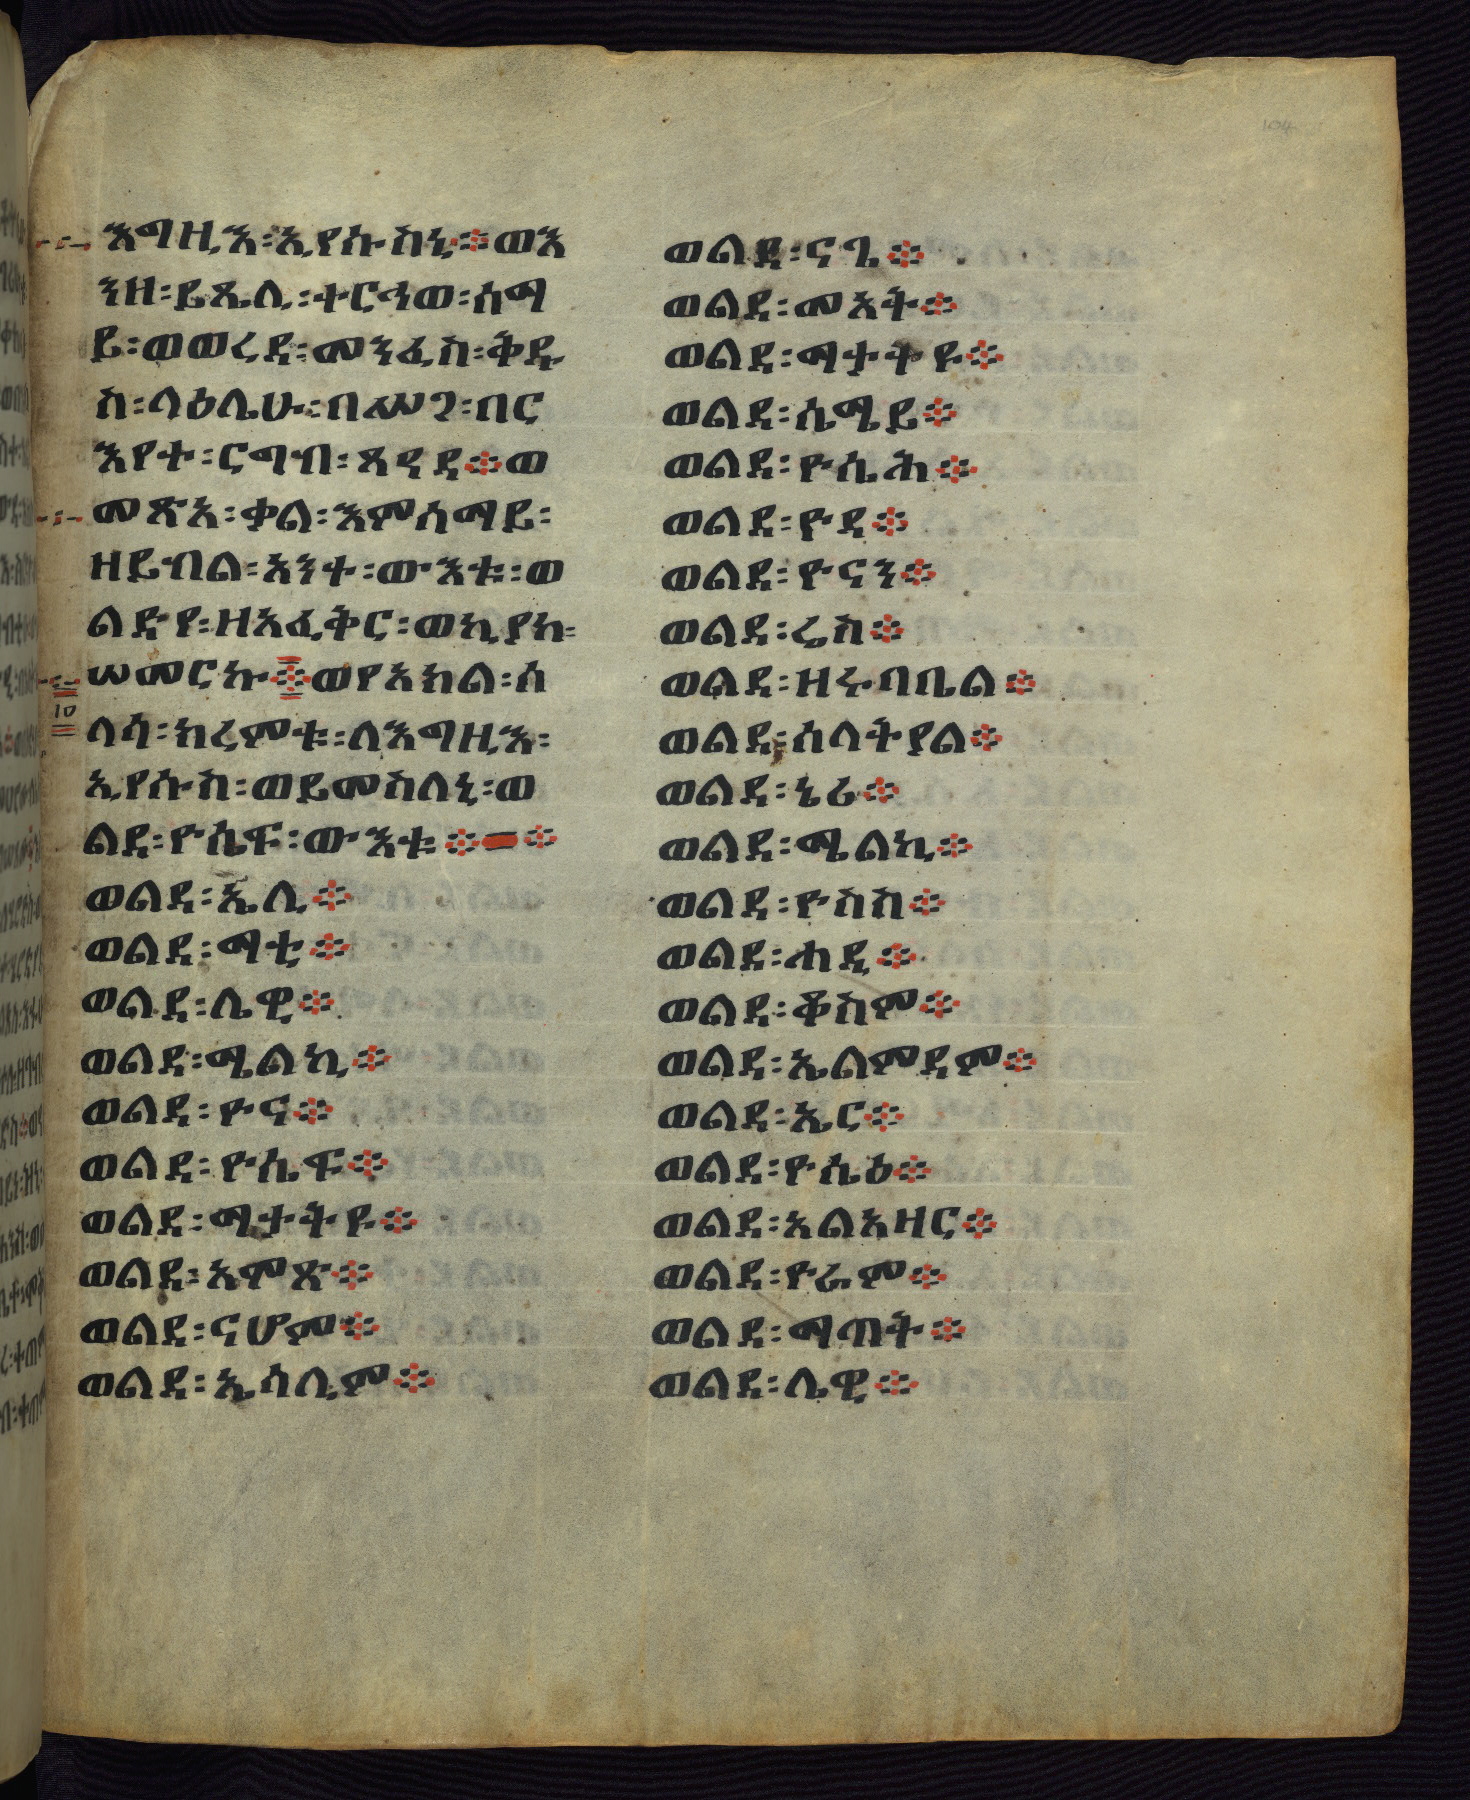 እግዚእ፡ኢየሱስኒ፨ወእ
ንዘ፡ይጼሊ፡ተርኅወ፡ሰማ
ይ፡ወወረደ፡መንፈስ፡ቅዱ
ስ፡ላዕሌሁ፡በሥጋ፡በር
እየተ፡ርግብ፡ጸዓዳ፨ወ
መጽአ፡ቃል፡እምሰማይ፡
ዘይብል፡አንተ፡ውእቱ፡ወ
ልድየ፡ዘአፈቅር፡ወኪያከ፡
ሠመርኩ፨ወየአክል፡ሰ
ላሳ፡ክረምቱ፡ለእግዚእ፡
ኢየሱስ፡ወይመስለኒ፡ወ
ልደ፡ዮሴፍ፡ውእቱ፨፨
ወልደ፡ኤሊ፨
ወልደ፡ማቲ፨
ወልደ፡ሌዊ፨
ወልደ፡ሜልኪ፨
ወልደ፡ዮና፨
ወልደ፡ዮሴፍ፨
ወልደ፡ማተትዩ፨
ወልደ፡አምጽ፨
ወልደ፡ናሆም፨
ወልደ፡ኤሰሊም፨
ወልደ፡ናጌ፨
ወልደ፡መአት፨
ወልደ፡ማተትዩ፨
ወልደ፡ሴሜይ፨
ወልደ፡ዮሴሕ፨
ወልደ፡ዮዳ፨
ወልደ፡ዮናን፨
ወልደ፡ሬስ፨
ወልደ፡ዘሩባቤል፨
ወልደ፡ሰላትያል፨
ወልደ፡ኔሪ፨
ወልደ፡ሜልኪ፨
ወልደ፡ዮስስ፨
ወልደ፡ሐዲ፨
ወልደ፡ቆስም፨
ወልደ፡ኤልሞዳም፨
ወልደ፡ኤር፨
ወልደ፡ዮሴዕ፨
ወልደ፡አልአዛር፨
ወልደ፡ዮራም፨
ወልደ፡ማጣት፨
ወልደ፡ሌዊ፨